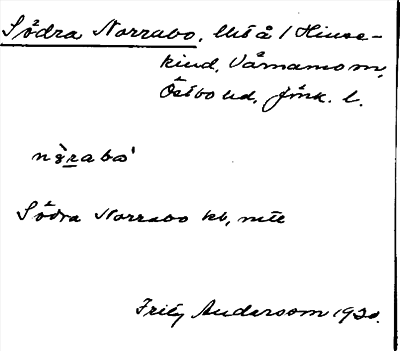 Södra Norrabo, Utå / Hinse-
kind, Värnamo sn,
Östbo hd, Jönk. l.
nòrabo'
Södra Norrabo kb, mtl
Fritz Andersson 1930.